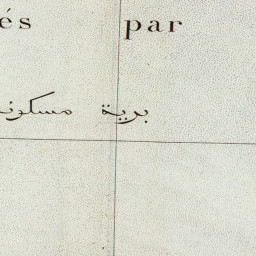 és par
برية مسكونة